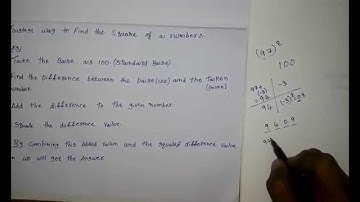 Fastest way to Find the Square of a number:-
Take the Base as 100 (Standard Base)
Find the Difference between the base(100) and the Taken (Given)
number.
Add the difference to the given number.
Square the difference value.
By Combining this Added value and the squared difference value
we will got the Answer
(97)²
100
97+
(-3)
94
-3
(-3)² = 09
9 4 0 9